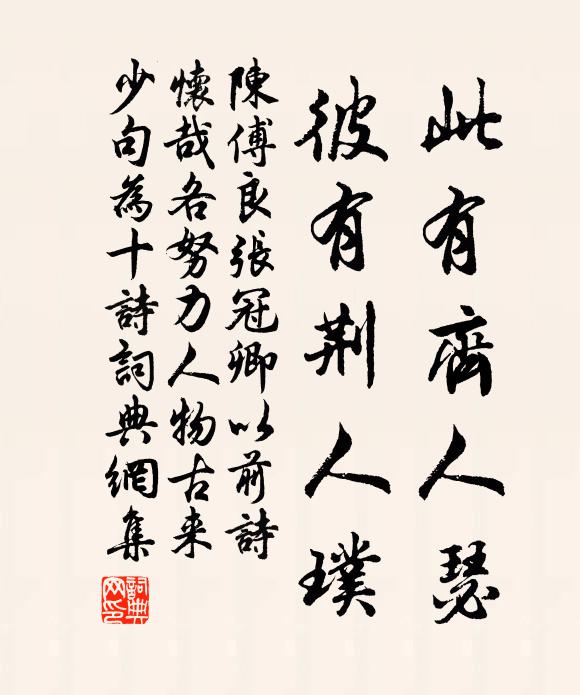 此有齊人瑟
彼有荆人璞
陳傅良張冠卿以前詩
懷哉各努力人物古来
少句為十詩詞典網集
詞典网印